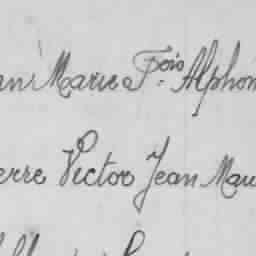 an Marie Fois Alphon
erre Victor Jean Mau